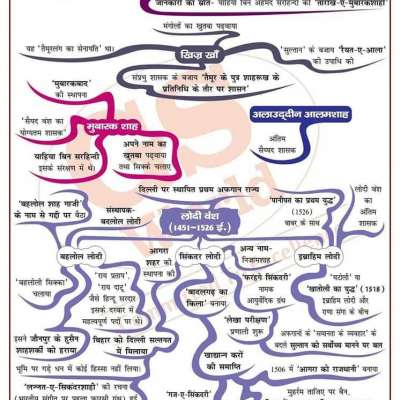 जानकारी का स्रोत- याहिया बिन अहमद सरहिन्दी की 'तारीख-ए-मुबारकशाही'
मंगोलों का खुतबा पढ़वाया
यह 'तैमूरलंग का सेनापति' था।
खिज्र खाँ
'सुल्तान' के बजाय 'रैयत-ए-आला'
की उपाधि ली
संप्रभु शासक के बजाय 'तैमूर के पुत्र शाहरुख के
प्रतिनिधि के तौर पर शासन'
'मुबारकबाद'
की स्थापना
'सैयद वंश का
योग्यतम शासक'
मुबारक शाह
याहिया बिन सरहिन्दी
इसके संरक्षण में थे।
अपने नाम का
खुतबा पढ़वाया
तथा सिक्के चलाए
अलाउद्दीन आलमशाह
अंतिम
सैय्यद शासक
दिल्ली पर स्थापित प्रथम अफगान राज्य
'बहलोल शाह गाजी'
के नाम से गद्दी पर बैठा
संस्थापक-
बदलोल लोदी
लोदी वंश
(1451-1526 ई.)
'पानीपत का प्रथम युद्ध'
(1526)
बाबर के साथ
लोदी वंश
का
अंतिम
शासक
बहलोल लोदी
आगरा
शहर को
स्थापना
सिकंदर लोदी
अन्य नाम-
निजामशाह
इब्राहिम लोदी
'बहलोली सिक्का'
चलाया
'राय प्रताप',
'राय दादू'
जैसे हिन्दू सरदार
इसके दरबार में
महत्वपूर्ण पदों पर थे।
'बादलगढ़ का
किला' बनाया
'फरहंगे सिकंदरी'
नामक
आयुर्वेदिक ग्रंथ
'घटोली' या
'खातोली का युद्ध' (1518)
इब्राहिम लोदी और
राणा सांगा के बीच
'लेखा परीक्षण'
प्रणाली शुरू
इसने जौनपुर के हुसैन
शाहशर्की को हराया
बिहार को दिल्ली सल्तनत
में मिलाया
खाद्यान्न करों
की समाप्ति
अफगानों के 'समानता के व्यवहार' के
बदले सुल्तान को सर्वोच्च मानने पर बल
भूमि पर गड़े धन में कोई हिस्सा नहीं लिया।
1506 में 'आगरा को राजधानी' बनाया
'लज्जत-ए-सिकंदरशाही' की रचना
(भारतीय संगीत पर पहला फारसी ग्रंथ) हुई
'गज-ए-सिकंदरी'
मुहर्रम ताजिए पर बैन,